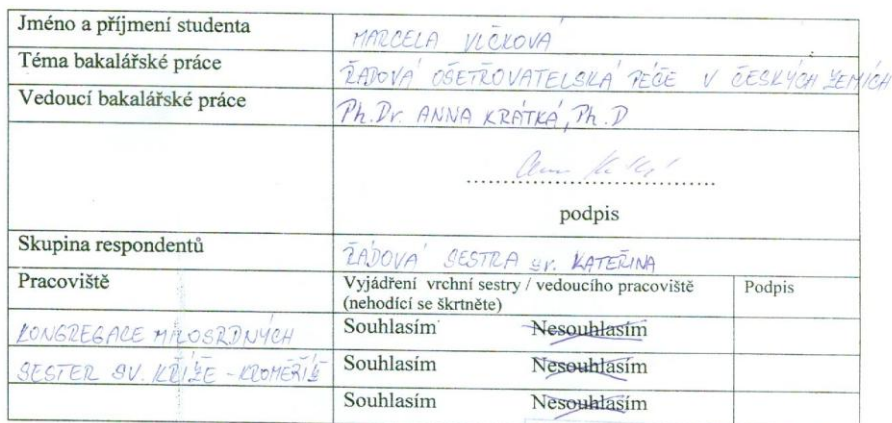 Jméno a příjmení studenta MARCELA VLČKOVÁ
Téma bakalářské práce ŘÁDOVÁ OŠETŘOVATELSKÁ PÉČE V ČESKÝCH ZEMÍCH
Vedoucí bakalářské práce Ph.Dr. ANNA KRÁTKÁ, Ph.D
podpis
Skupina respondentů ŘÁDOVÁ SESTRA sr. KATEŘINA
Pracoviště Vyjádření vrchní sestry / vedoucího pracoviště Podpis
(nehodící se škrtněte)
KONGREGACE MILOSRDNÝCH Souhlasím Nesouhlasím
SESTER SV. KŘÍŽE - KROMĚŘÍŽ Souhlasím Nesouhlasím
Souhlasím Nesouhlasím